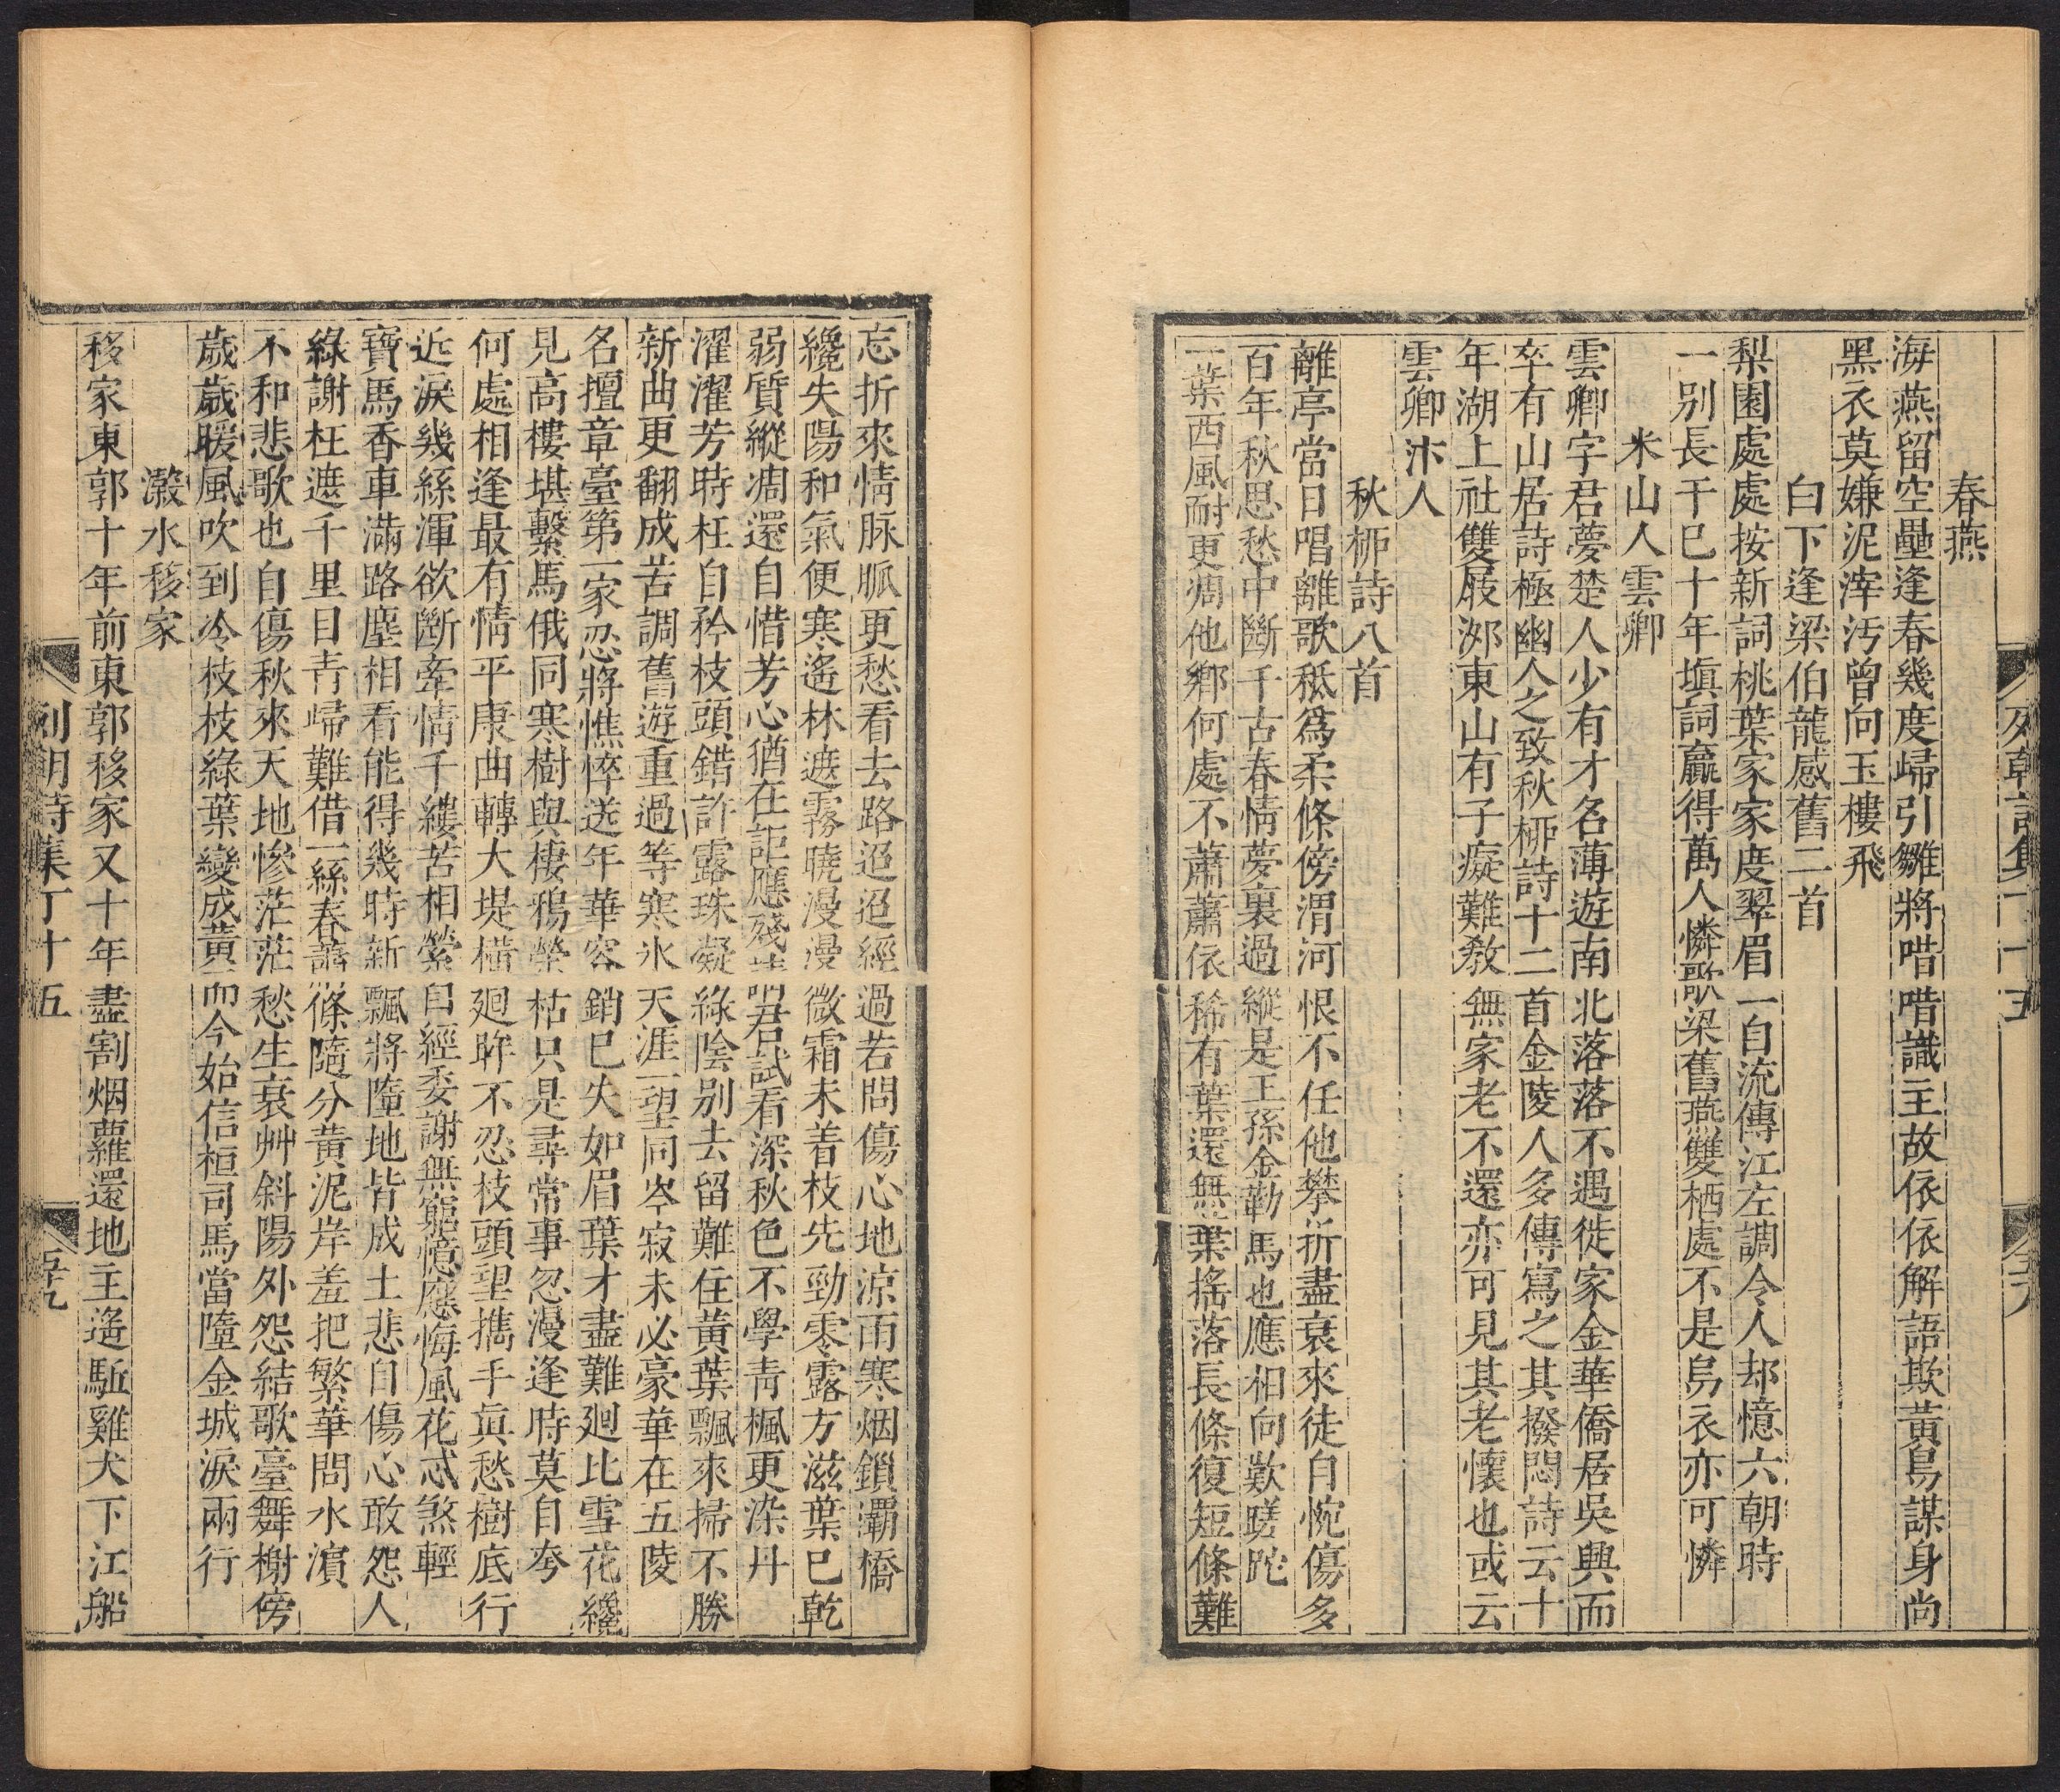 春燕
海燕留空壘逢春幾度歸引雛將喈喈識主故依依解語欺黃鳥謀身尚
黑衣莫嫌泥滓汚曾向玉樓飛
白下逢梁伯龍感舊二首
梨園處處按新詞桃葉家家度翠眉一自流傳江左調令人却憶六朝時
一別長干已十年塡詞贏得萬人憐歌梁舊燕雙栖處不是烏衣亦可憐
米山人雲卿
雲卿字君夢楚人少有才名薄遊南北落落不遇徙家金華僑居吳興而
卒有山居詩極幽人之致秋柳詩十二首金陵人多傳寫之其撥悶詩云十
年湖上社雙屐洳東山有子癡難敎無家老不還亦可見其老懷也或云
雲卿汴人
秋柳詩八首
離亭當日唱離歌秪爲柔條傍渭河恨不任他攀折盡衰來徒自惋傷多
百年秋思愁中斷千古春情夢裏過縱是王孫金勒馬也應相向歎蹉跎
一葉西風耐更凋他鄉何處不蕭蕭依稀有葉還無葉搖落長條復短條難
忘折來情脉脈更愁看去路迢迢經過若問傷心地凉雨寒烟鎖灞橋
纔失陽和氣便寒遙林遮霧曉漫漫微霜未着枝先勁零露方滋葉已乾
弱質縱凋還自惜芳心猶在詎應殘請君試看深秋色不學靑楓更染丹
濯濯芳時枉自矜枝頭錯許露珠凝綠陰別去留難住黃葉飄來掃不勝
新曲更翻成苦調舊遊重過等寒氷天涯一望同岑寂未必豪華在五陵
名擅章臺第一家忍將憔悴送年華容銷已失如眉葉才盡難廻比雪花纔
見高樓堪繫馬俄同寒樹與棲鴉榮枯只是尋常事忽漫逢時莫自夸
何處相逢最有情平康曲轉大堤橫廻眸不忍枝頭望擕手眞愁樹底行
近淚幾絲渾欲斷牽情千縷苦相縈自經委謝無窮憶應悔風花忒煞輕
寶馬香車滿路塵相看能得幾時新飄將墮地皆成土悲自傷心敢怨人
綠謝枉遮千里目靑歸難借一絲春蕭條隨分黃泥岸羞把繁華問水濱
不和悲歌也自傷秋來天地慘茫茫愁生衰艸斜陽外怨結歌臺舞榭傍
歲歲暖風吹到冷枝枝綠葉變成黃而今始信桓司馬當墮金城淚兩行
瀫水移家
移家東郭十年前東郭移家又十年盡割烟蘿還地主遙駈雞犬下江船
列朝詩集丁十五